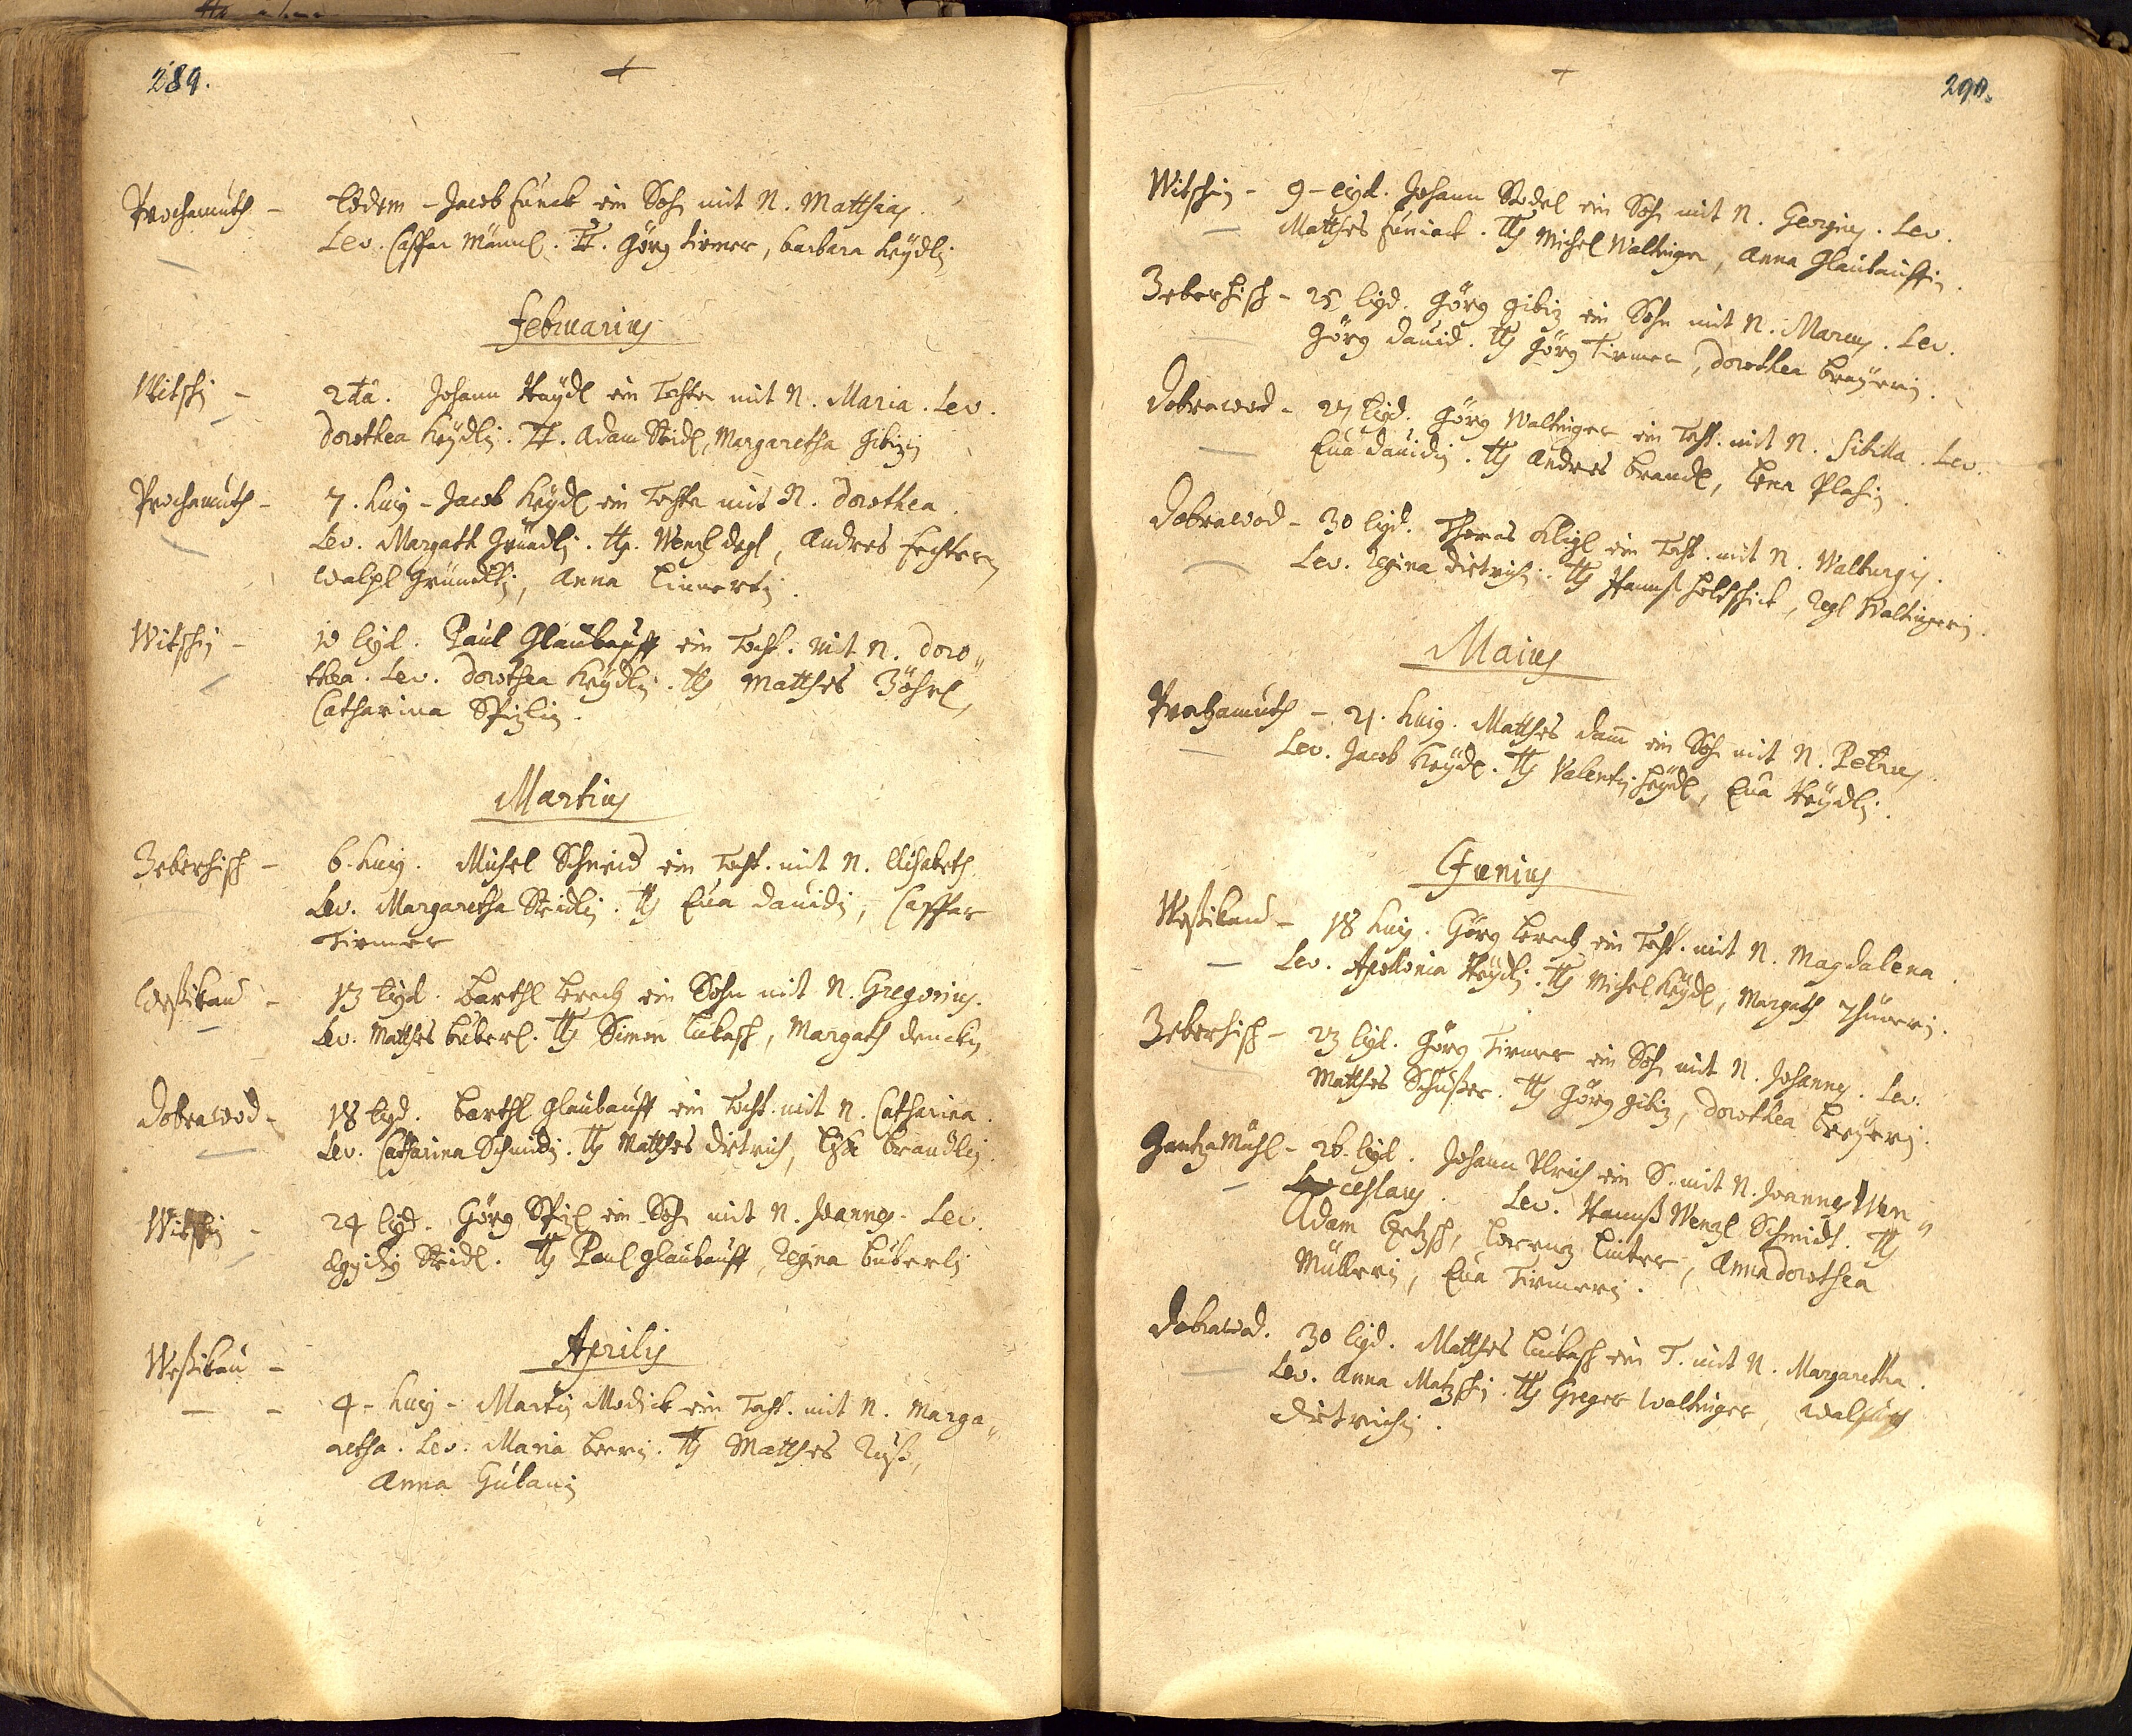 289.
Prochamuth - Eodem - Jacob Funck ein Sohn mit N. Matthias.
Lev. Caspar Männl. TT. Görg Tirmer, Barbara Heÿdlin
Februarius
Witschin - 2da. Johann Haÿdl ein Tochter mit N. Maria. Lev.
Dorothea Heÿdlin. TT. Adam Steidl, Margaretha Gibizin
Prochamuth - 7. huius - Jacob Heÿdl ein Tochter mit N. Dorothea.
Lev. Margath Gründlin. TTs. Wenzl Degl, Andres Fechter,
Walpl Gründlin, Anna Linnertin.
Witschin - 10 eiusd. Paul Glaubauff ein Tocht. mit N. Doro„
thea. Lev. Dorothea Heÿdlin. TTs Matthes Zöhrl,
Catharina Spizlin.
Martius
Zeberhisch - 6. huius. Michel Schmid ein Tocht. mit N. Elisabeth
Lev. Margaretha Steidlin. TTs Eua Dauidin, Caspar
Tirmer
Weßikau - 13 eiusd. Barthl Lerch ein Sohn mit N. Gregorius.
Lev. Matthes Buberl. TTs Simon Lukasch, Margath Denckin
Dobrawod - 18 eiusd. Barthl Glaubauff ein Tocht. mit N. Catharina.
Lev. Catharina Schmidin. TTs Matthes Dietrich, Lisl Brandlin.
Witschin - 24 eiusd. Görg Spizl ein Sohn mit N. Joannes. Lev.
Egidius Steidl. TTs Paul Glaubauff, Regina Buberlin
Aprilis
Weßikau -
4 - huius - Martin Modick ein Tocht. mit N. Marga„
retha. Lev. Maria Beerin. TTs Matthes Ruß,
Anna Gubanin
290.
Witschin - 9 - eiusd. Johann Stodel ein Sohn mit N. Georgius. Lev.
Matthes Funiack. TTs Michel Waltinger, Anna Glaubauffin.
Zeberhisch - 25 eiusd. Görg Gibiz ein Sohn mit N. Marcus. Lev.
Görg Dauid. TTs Görg Tirmer, Dorothea Breÿerin.
Dobrawod - 27 eiusd. Görg Waltinger ein Tocht. mit N. Sibilla. Lev.
Eua Dauidin. TTs Andres Brandl, Lena Plasin.
Dobrawod - 30 eiusd. Thomas Kligl ein Tocht. mit N. Walburgis.
Lev. Regina Dietrichin. TTs Hannß Holdschick, Regl Waltingerin.
Maius
Prochamuth - 21. huius. Matthes Dam ein Sohn mit N. Petrus.
Lev. Jacob Heÿdl. TTs Valentin Heÿdl, Eua Heÿdlin.
Junius
Weßikau - 18 huius. Görg Lerch ein Tocht. mit N. Magdalena.
Lev. Apollonia Heÿdlin. TTs Michel Heÿdl, Margath Thürerin.
Zeberhisch - 23 eiusd. Görg Tirmer ein Sohn mit N. Johannes. Lev.
Matthes Schußer. TTs Görg Gibiz, Dorothea Breÿerin.
Mühl - 26. eiusd. Johann Ulrich ein S. mit N. Joannes Wen„
ceslaus. Lev. Hannß Wenzl Schmidt. TTs
Adam, Lorenz Linter, Anna Dorothea
Müllerin, Eua Tirmerin.
Dobrawod. 30 eiusd. Matthes Lukasch ein T. mit N. Margaretha.
Lev. Anna Matzschin. TTs Greger Waltinger, Walpurg
Dietrichin.